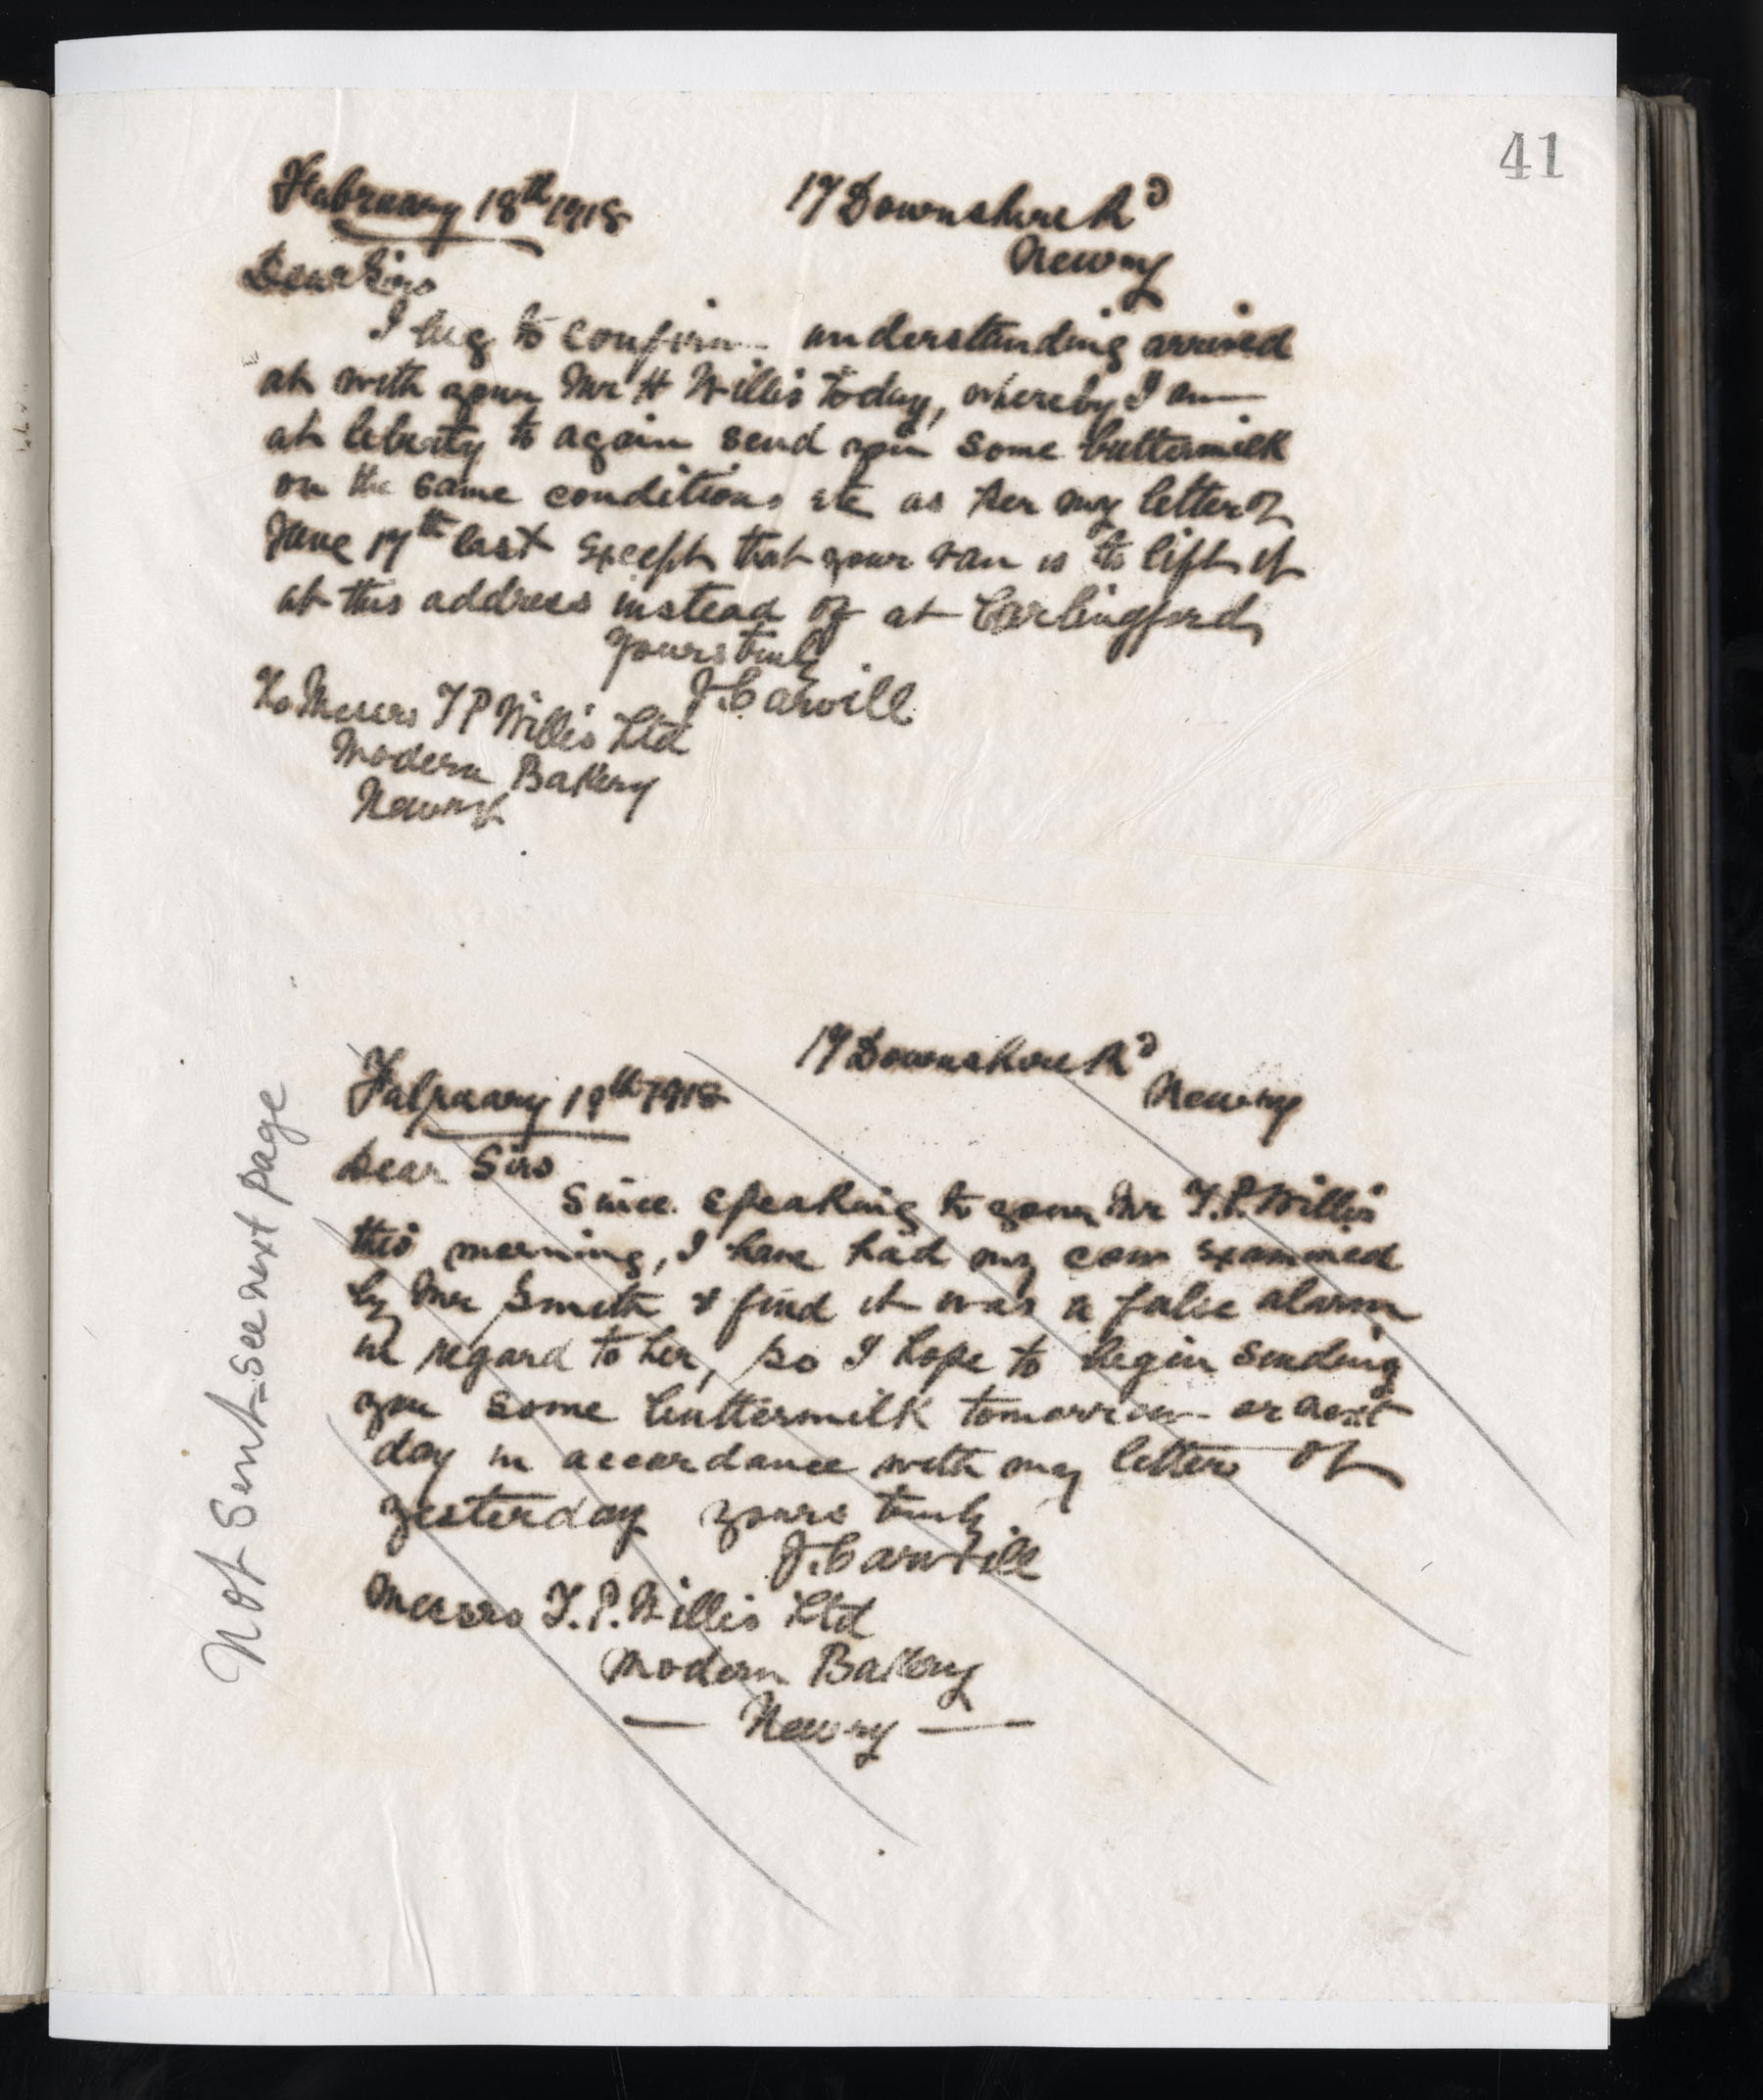 41
February 18th 1918
17 Downshire Rd
Newry
Dear Sirs
I beg to confirm understanding arrived
at with your Mr H Willis today, whereby I am
at liberty to again send you some buttermilk
on the same conditions etc as per my letter of
June 17th last except that your van is to lift it
at this address instead of at Carlingford,
yours truly
J. Carvill
To Messrs T P Willis Ltd
Modern Bakery
Newry
17 Downshire Rd
Newry
February 19th 1918
Dear Sirs
Since speaking to your Mr T.P. Willis
this morning, I have had my cow examined
by Mr Smith & find it was a false alarm
in regard to her, so I hope to begin sending
you some buttermilk tomorrow or next
day in accordance with my letter of
yesterday yours truly
J. Carvill
Messrs T.P. Willis Ltd
Modern Bakery
— Newry —
Not Sent - see next page